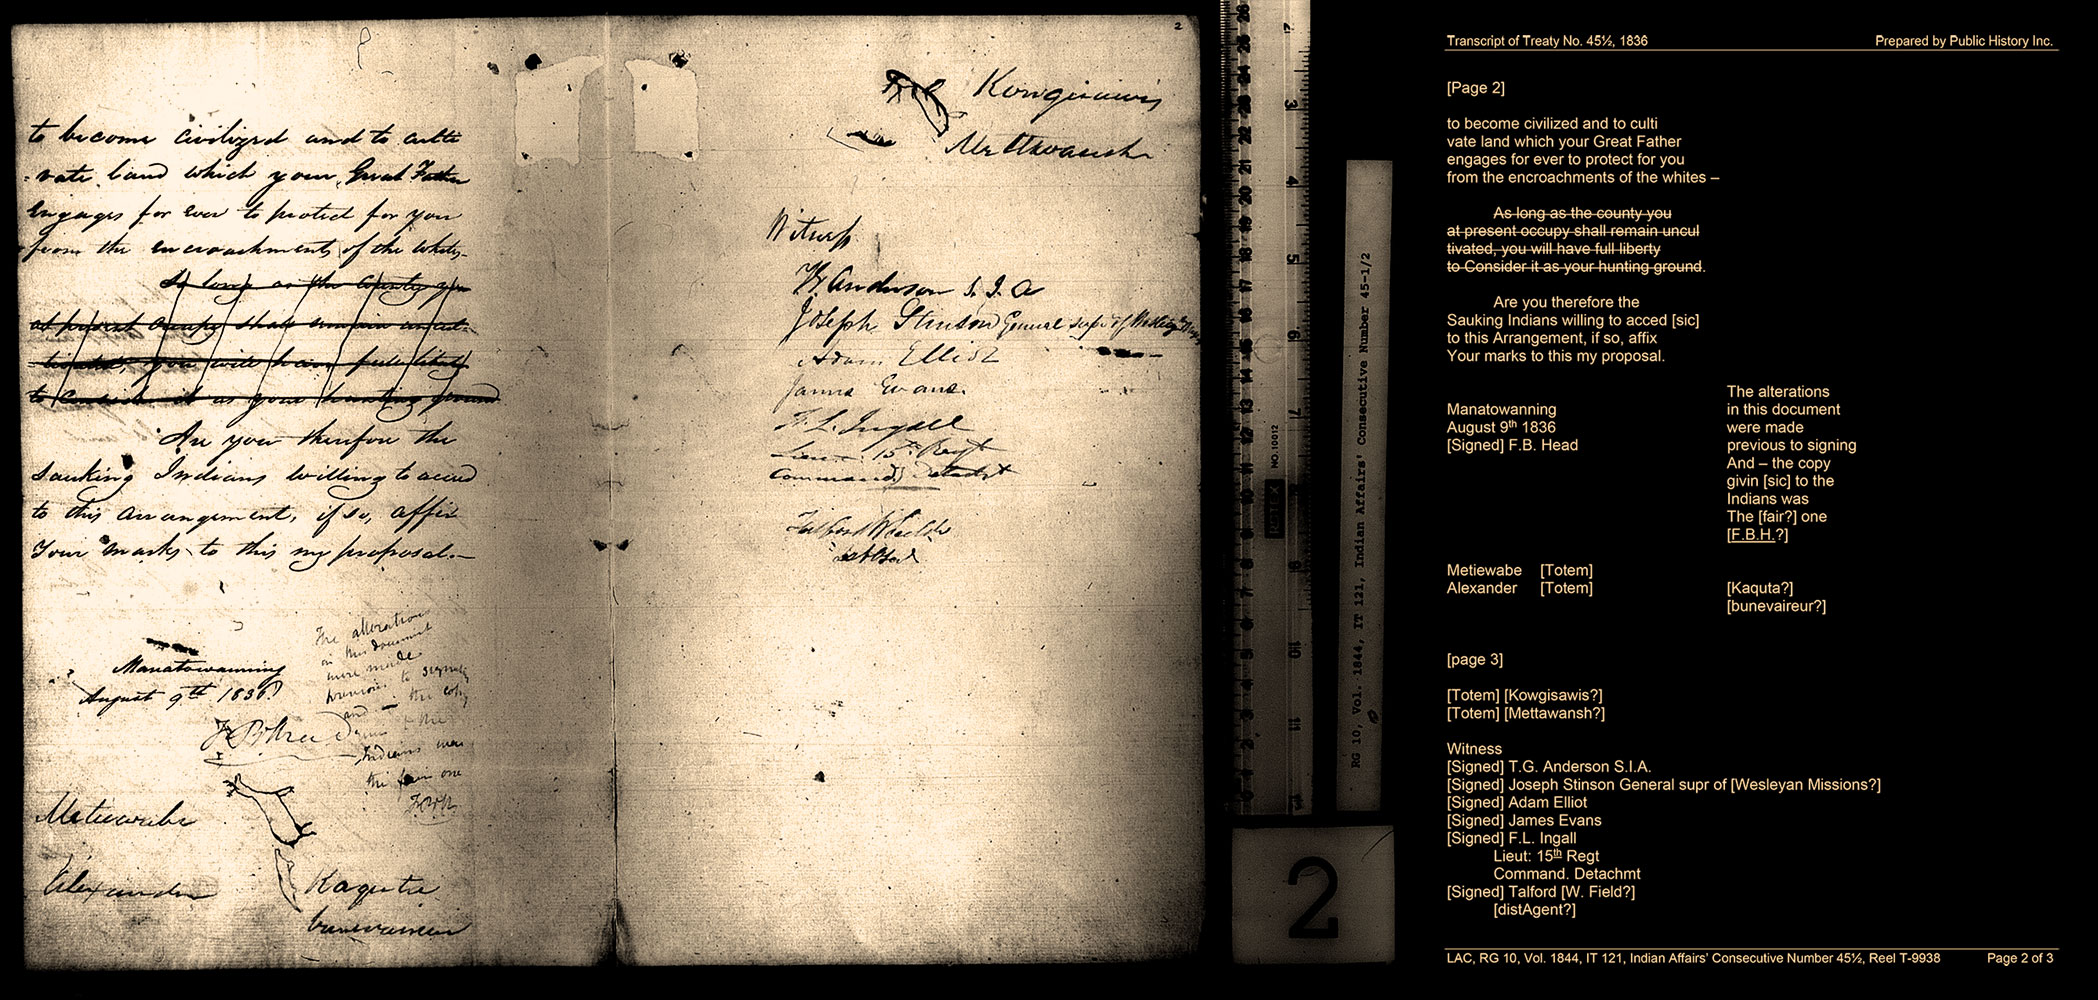 2
to become civilized and to culti
-vate land which your Great Father
engages for ever to protect for you
from the encroachments of the whites-
As long as the county you
at present occupy shall remain uncul-
tivated, you will have full liberty
to Consider it as your hunting ground
Are you therefore the
Sauking Indians willing to acced
to this Arrangement, if so, affix
Your marks to this my proposal.-
Manatowanning
August 9th 1836
F B Head
The alterations
in this document
were made
previous to signing
and - the copy
givin to the
Indians was
the one
FBH
Metiewabe
Alexander
Kaquta
Kowgisawis
Mettawansh
Witness
TG Anderson S. I. A
Joseph Stinson General supr of
Adam Elliot
James Evans
F. L. Ingall
Lieut 15th Regt
Command Detachmt
RG 10, Vol. 1844, IT 121, Indian Affairs' Consecutive Number 45-1/2
NO. 10012
2
Transcript of Treaty No. 45½, 1836
Prepared by Public History Inc.
[Page 2]
to become civilized and to culti
vate land which your Great Father
engages for ever to protect for you
from the encroachments of the whites –
As long as the county you
at present occupy shall remain uncul
tivated, you will have full liberty
to Consider it as your hunting ground.
Are you therefore the
Sauking Indians willing to acced [sic]
to this Arrangement, if so, affix
Your marks to this my proposal.
Manatowanning
August 9th 1836
[Signed] F.B. Head
The alterations
in this document
were made
previous to signing
And – the copy
givin [sic] to the
Indians was
The [fair?] one
[F.B.H.?]
Metiewabe [Totem]
Alexander [Totem]
[Kaquta?]
[bunevaireur?]
[page 3]
[Totem] [Kowgisawis?]
[Totem] [Mettawansh?]
Witness
[Signed] T.G. Anderson S.I.A.
[Signed] Joseph Stinson General supr of [Wesleyan Missions?]
[Signed] Adam Elliot
[Signed] James Evans
[Signed] F.L. Ingall
Lieut: 15th Regt
Command. Detachmt
[Signed] Talford [W. Field?]
[distAgent?]
LAC, RG 10, Vol. 1844, IT 121, Indian Affairs' Consecutive Number 45½, Reel T-9938
Page 2 of 3